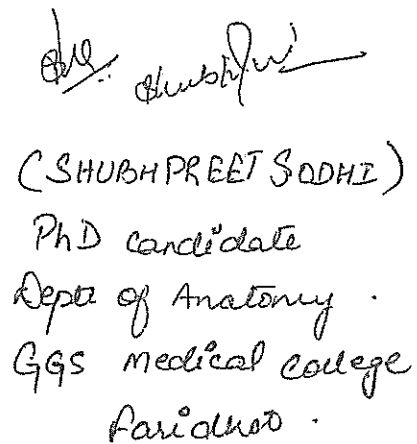 Shubhpreet
(SHUBHPREET SODHI)
PhD candidate
Deptt of Anatomy.
GGS Medical College
Faridkot.